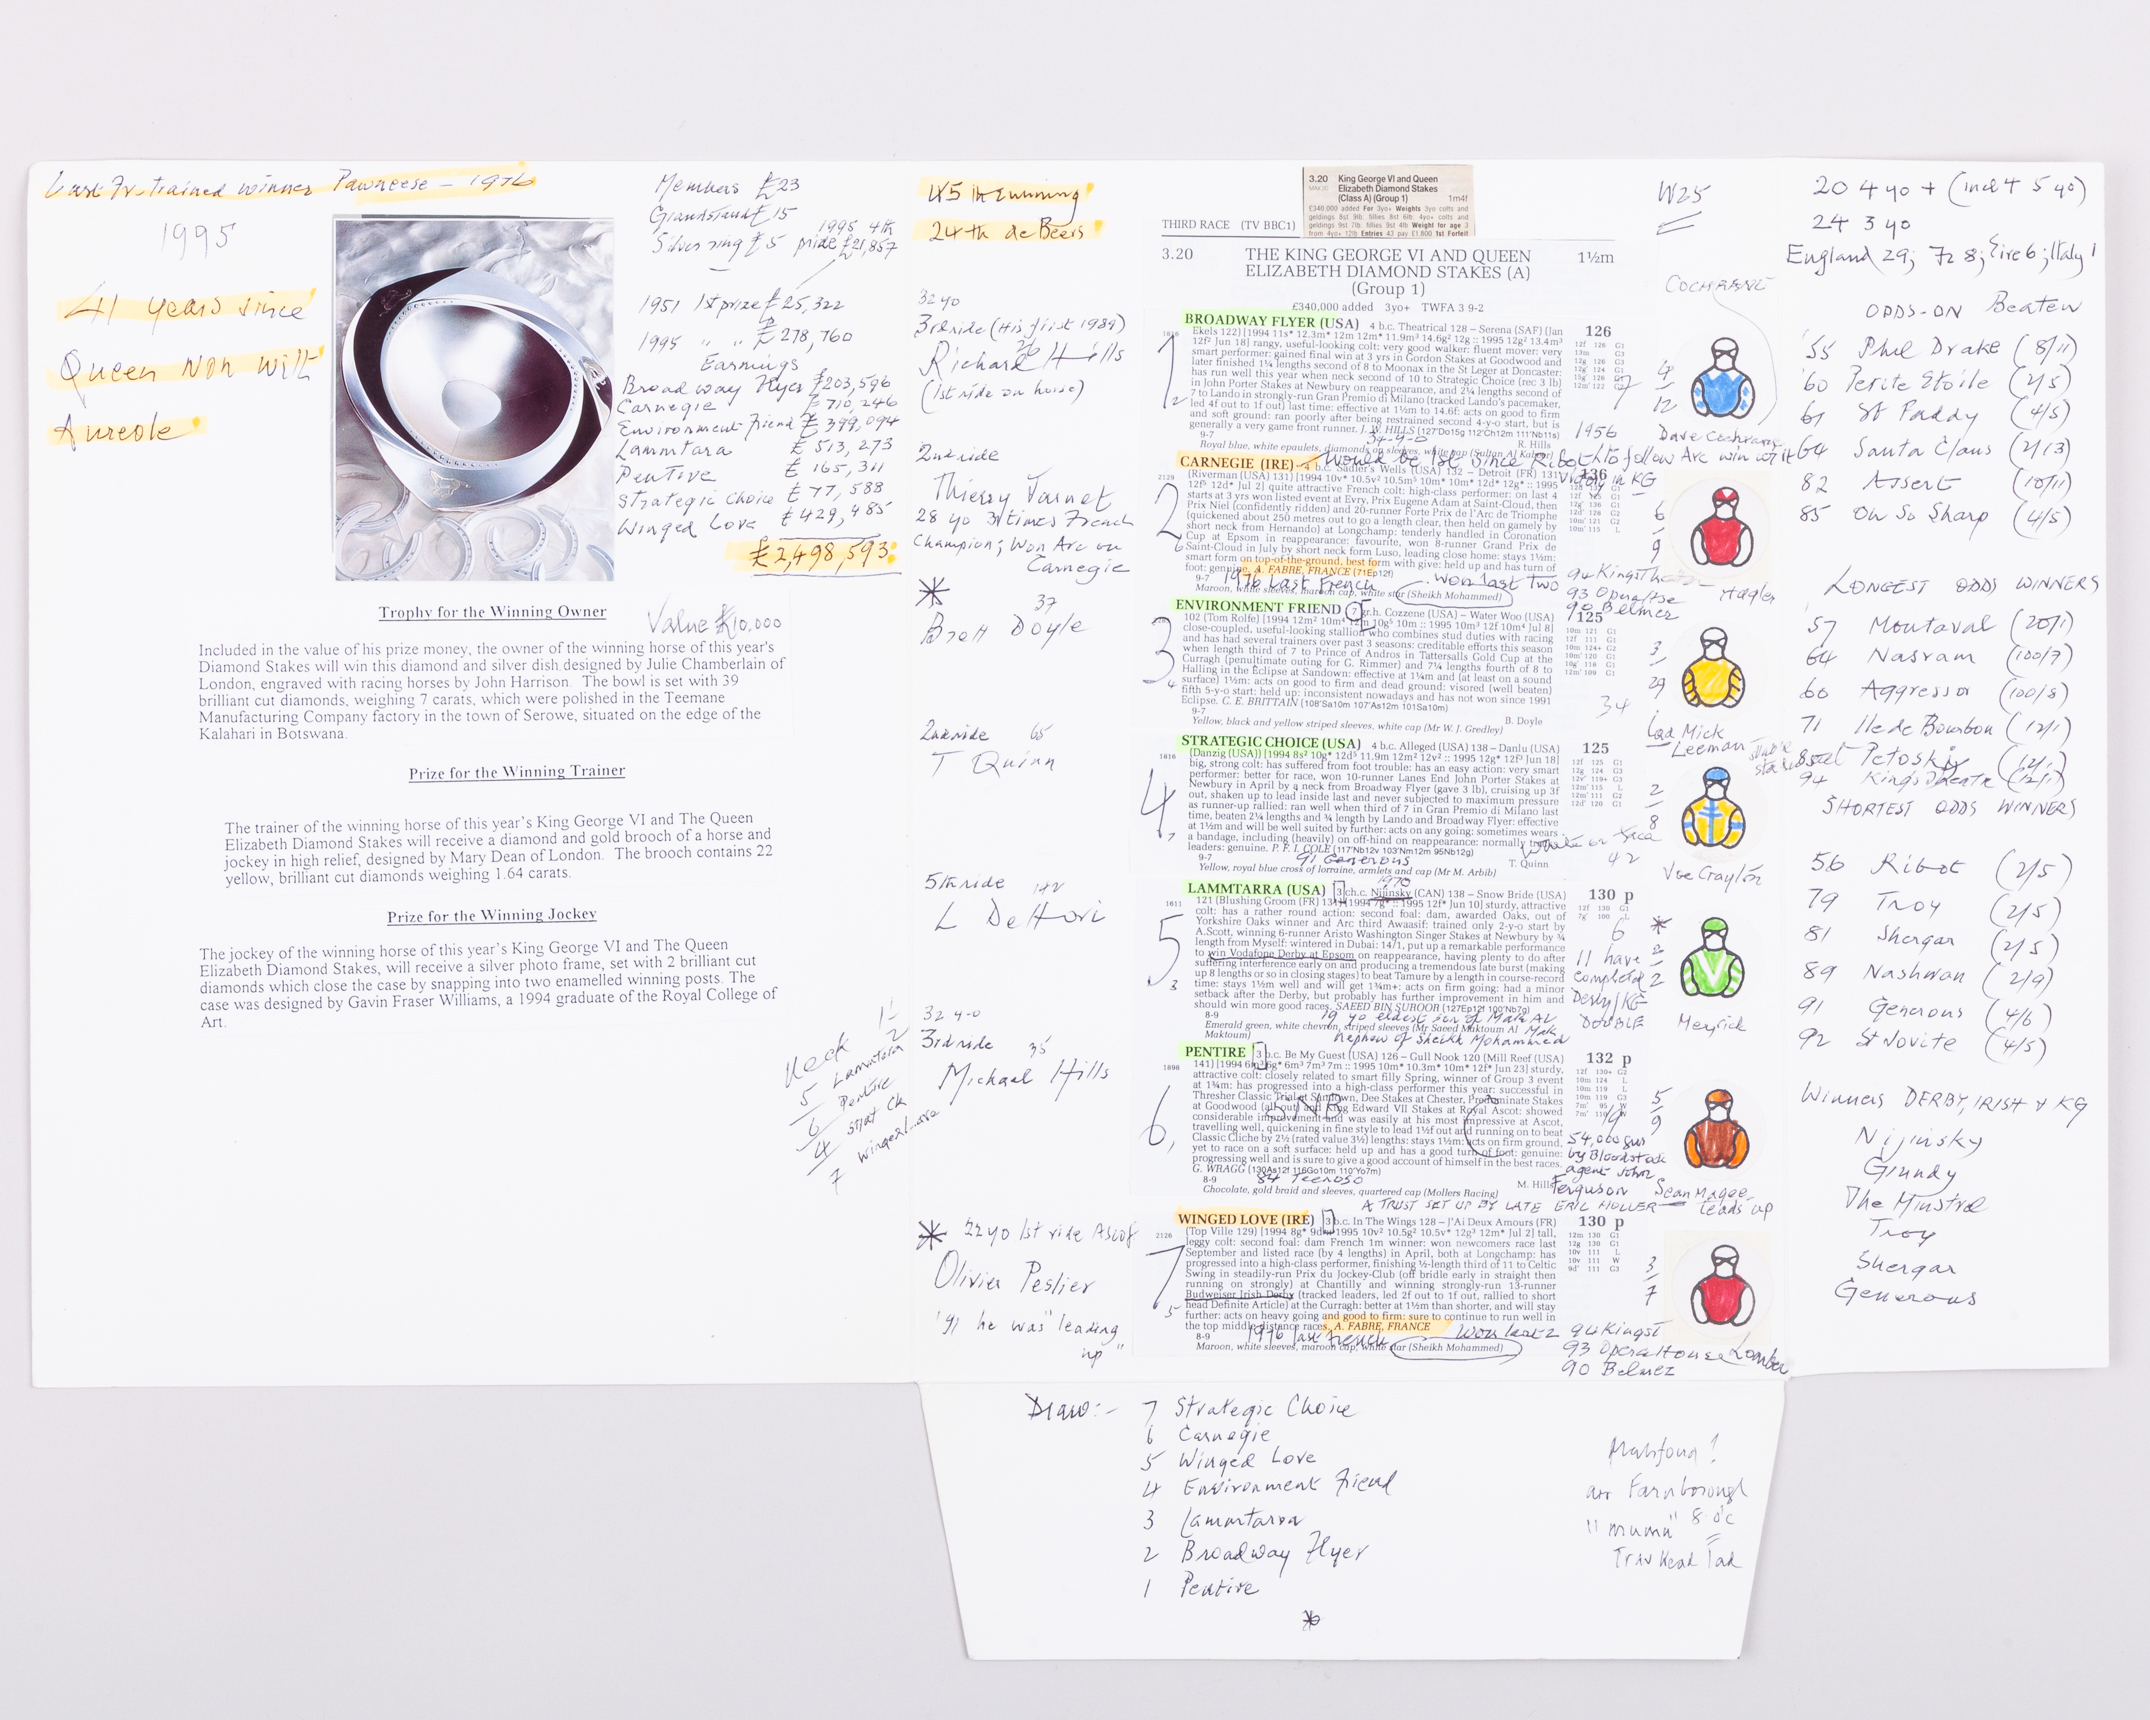 Last Fr. trained winner Pawneese - 1976
1995
41 years since
Queen won with
Aureole
Members £23
Grandstand £15
Silver ring £5
1995 4th
prize £21,857
1951 1st prize £25,322
1995 " " £278,760
Earnings
Broadway Flyer £203,596
Carnegie £710,246
Environment Friend £399,094
Lammtarra £513,273
Pentire £165,311
Strategic Choice £77,588
Winged Love £429,485
£2,498,593
Trophy for the Winning Owner
Value £10.000
Included in the value of his prize money, the owner of the winning horse of this year's
Diamond Stakes will win this diamond and silver dish designed by Julie Chamberlain of
London, engraved with racing horses by John Harrison. The bowl is set with 39
brilliant cut diamonds, weighing 7 carats, which were polished in the Teemane
Manufacturing Company factory in the town of Serowe, situated on the edge of the
Kalahari in Botswana.
Prize for the Winning Trainer
The trainer of the winning horse of this year's King George VI and The Queen
Elizabeth Diamond Stakes will receive a diamond and gold brooch of a horse and
jockey in high relief, designed by Mary Dean of London. The brooch contains 22
yellow, brilliant cut diamonds weighing 1.64 carats.
Prize for the Winning Jockey
The jockey of the winning horse of this year's King George VI and The Queen
Elizabeth Diamond Stakes, will receive a silver photo frame, set with 2 brilliant cut
diamonds which close the case by snapping into two enamelled winning posts. The
case was designed by Gavin Fraser Williams, a 1994 graduate of the Royal College of
Art.
Neck
5 Lammtarra
6 Pentire
4 Strat Ch
7 Winged Love
45th running
24th de Beers
32 yo
3rd ride (His first 1989)
Richard Hills
(1st ride on horse)
2nd ride
Thierry Jarnet
28 yo 3 times French
Champion; Won Arc on
Carnegie
37
Brett Doyle
2nd ride 65
T Quinn
5th ride 142
L Dettori
32 y-o
3rd ride 35
Michael Hills
22 yo 1st ride Ascot
Olivier Peslier
'91 he was "leading
up"
3.20 King George VI and Queen
Elizabeth Diamond Stakes
(Class A) (Group 1) 1m4f
£340,000 added For 3yo+ Weights 3yo colts and
geldings 8st 9lb fillies 8st 6lb 4yo+ colts and
geldings 9st 7lb fillies 9st 4lb Weight for age 3
from 4yo+ 12lb Entries 43 pay £1,800 1st Forfeit
THIRD RACE (TV BBC1)
3.20 THE KING GEORGE VI AND QUEEN 1½m
ELIZABETH DIAMOND STAKES (A)
(Group 1)
£340,000 added 3yo+ TWFA 3 9-2
1
BROADWAY FLYER (USA) 4 b.c. Theatrical 128 – Serena (SAF) (Jan 126
Ekels 122) [1994 11s* 12.3m* 12m 12m* 11.9m³ 14.6g² 12g :: 1995 12g² 13.4m³
12f² Jun 18] rangy, useful-looking colt: very good walker: fluent mover: very
smart performer: gained final win at 3 yrs in Gordon Stakes at Goodwood and
later finished 1¼ lengths second of 8 to Moonax in the St Leger at Doncaster:
has run well this year when neck second of 10 to Strategic Choice (rec 3 lb)
in John Porter Stakes at Newbury on reappearance, and 2¼ lengths second of
7 to Lando in strongly-run Gran Premio di Milano (tracked Lando's pacemaker,
led 4f out to 1f out) last time: effective at 1½m to 14.6f: acts on good to firm
and soft ground: ran poorly after being restrained second 4-y-o start, but is
generally a very game front runner. J. W. HILLS (127'Do15g 112'Ch12m 111'Nb11s)
9-7 34-y-o R. Hills
Royal blue, white epaulets, diamonds on sleeves, white cap (Sultan Al Kabeer)
2
CARNEGIE (IRE) 4 b.c. Sadler's Wells (USA) 132 – Detroit (FR) 131 136
1956
Would be 1st since Ribot to follow Arc win with
victory in KG
(Riverman (USA) 131) [1994 10v* 10.5v² 10.5m⁵ 10m* 10m* 12d* 12g* :: 1995
12f⁵ 12d* Jul 2] quite attractive French colt: high-class performer: on last 4
starts at 3 yrs won listed event at Evry, Prix Eugene Adam at Saint-Cloud, then
Prix Niel (confidently ridden) and 20-runner Forte Prix de l'Arc de Triomphe
(quickened about 250 metres out to go a length clear, then held on gamely by
short neck from Hernando) at Longchamp: tenderly handled in Coronation
Cup at Epsom in reappearance: favourite, won 8-runner Grand Prix de
Saint-Cloud in July by short neck form Luso, leading close home: stays 1½m:
smart form on top-of-the-ground, best form with give: held up and has turn of
foot: genuine. A. FABRE, FRANCE (71Ep12f)
9-7 1976 Last French Won last two
Maroon, white sleeves, maroon cap, white star (Sheikh Mohammed)
93 Opera Hse
90 Belmez
3
ENVIRONMENT FRIEND 7 gr.h. Cozzene (USA) – Water Woo (USA) 125
102 (Tom Rolfe) [1994 12m² 10m⁴ 12m 10g⁵ 10m :: 1995 10m³ 12f 10m⁴ Jul 8]
close-coupled, useful-looking stallion who combines stud duties with racing
and has had several trainers over past 3 seasons: creditable efforts this season
when length third of 7 to Prince of Andros in Tattersalls Gold Cup at the
Curragh (penultimate outing for G. Rimmer) and 7¼ lengths fourth of 8 to
Halling in the Eclipse at Sandown: effective at 1¼m and (at least on a sound
surface) 1½m: acts on good to firm and dead ground: visored (well beaten)
fifth 5-y-o start: held up: inconsistent nowadays and has not won since 1991
Eclipse. C. E. BRITTAIN (108'Sa10m 107'As12m 101Sa10m)
9-7 B. Doyle
Yellow, black and yellow striped sleeves, white cap (Mr W. J. Gredley)
4
STRATEGIC CHOICE (USA) 4 b.c. Alleged (USA) 138 – Danlu (USA) 125
(Danzig (USA)) [1994 8s² 10g* 12d⁵ 11.9m 12m² 12v² :: 1995 12g* 12f³ Jun 18]
big, strong colt: has suffered from foot trouble: has an easy action: very smart
performer: better for race, won 10-runner Lanes End John Porter Stakes at
Newbury in April by a neck from Broadway Flyer (gave 3 lb), cruising up 3f
out, shaken up to lead inside last and never subjected to maximum pressure
as runner-up rallied: ran well when third of 7 in Gran Premio di Milano last
time, beaten 2¼ lengths and ¾ length by Lando and Broadway Flyer: effective
at 1½m and will be well suited by further: acts on any going: sometimes wears
a bandage, including (heavily) on off-hind on reappearance: normally tracks
leaders: genuine. P. F. I. COLE (117'Nb12v 103'Nm12m 95Nb12g)
9-7 91 Generous T. Quinn
Yellow, royal blue cross of lorraine, armlets and cap (Mr M. Arbib)
5
1970
LAMMTARRA (USA) 3 ch.c. Nijinsky (CAN) 138 – Snow Bride (USA) 130 p
121 (Blushing Groom (FR) 131) [1994 7g* :: 1995 12f* Jun 10] sturdy, attractive
colt: has a rather round action: second foal: dam, awarded Oaks, out of
Yorkshire Oaks winner and Arc third Awaasif: trained only 2-y-o start by
A.Scott, winning 6-runner Aristo Washington Singer Stakes at Newbury by ¾
length from Myself: wintered in Dubai: 14/1, put up a remarkable performance
to win Vodafone Derby at Epsom on reappearance, having plenty to do after
suffering interference early on and producing a tremendous late burst (making
up 8 lengths or so in closing stages) to beat Tamure by a length in course-record
time: stays 1½m well and will get 1¾m+: acts on firm going: had a minor
setback after the Derby, but probably has further improvement in him and
should win more good races. SAEED BIN SUROOR (127Ep12f 100'Nb7g)
8-9 19 yo eldest son of Mak Al Mak
Emerald green, white chevron, striped sleeves (Mr Saeed Maktoum Al
Maktoum) Nephew of Sheikh Mohammed
11 have
completed
Derby/KG
DOUBLE
6
PENTIRE 3 b.c. Be My Guest (USA) 126 – Gull Nook 120 (Mill Reef (USA) 132 p
141) [1994 6m³ 6g* 6m³ 7m³ 7m :: 1995 10m* 10.3m* 10m* 12f* Jun 23] sturdy,
attractive colt: closely related to smart filly Spring, winner of Group 3 event
at 1¾m: has progressed into a high-class performer this year: successful in
Thresher Classic Trial at Sandown, Dee Stakes at Chester, Predominate Stakes
at Goodwood (all but King Edward VII Stakes at Royal Ascot: showed
considerable improvement and was easily at his most impressive at Ascot,
travelling well, quickening in fine style to lead 1½f out and running on to beat
Classic Cliche by 2½ (rated value 3½) lengths: stays 1½m: acts on firm ground,
yet to race on a soft surface: held up and has a good turn of foot: genuine:
progressing well and is sure to give a good account of himself in the best races.
G. WRAGG (130As12f 116Go10m 110'Yo7m)
8-9 84 Teenoso M. Hills
Chocolate, gold braid and sleeves, quartered cap (Mollers Racing)
54,000 gns
by Bloodstock
agent John
Ferguson
A TRUST SET UP BY LATE ERIC MOLLER
7
WINGED LOVE (IRE) 3 b.c. In The Wings 128 – J'Ai Deux Amours (FR) 130 p
(Top Ville 129) [1994 8g* 9d :: 1995 10v² 10.5g² 10.5v* 12g³ 12m* Jul 2] tall,
leggy colt: second foal: dam French 1m winner: won newcomers race last
September and listed race (by 4 lengths) in April, both at Longchamp: has
progressed into a high-class performer, finishing ½-length third of 11 to Celtic
Swing in steadily-run Prix du Jockey-Club (off bridle early in straight then
running on strongly) at Chantilly and winning strongly-run 13-runner
Budweiser Irish Derby (tracked leaders, led 2f out to 1f out, rallied to short
head Definite Article) at the Curragh: better at 1½m than shorter, and will stay
further: acts on heavy going and good to firm: sure to continue to run well in
the top middle-distance races. A. FABRE, FRANCE
8-9 1976 last French Won last 2
Maroon, white sleeves, maroon cap, white star (Sheikh Mohammed)
94 Kings T
93 Opera House
90 Belmez
W25
COCHRANE
Dave Cochrane
Hagler
Lad Mick
Leeman
Joe Crayton
Meyrick
Sean Magee
leads up
20 4 yo + (incl 4 5 yo)
24 3 yo
England 29; Fr 8; Eire 6; Italy 1
ODDS-ON Beaten
'55 Phil Drake (8/11)
'60 Petite Etoile (2/5)
61 St Paddy (4/5)
64 Santa Claus (2/13)
82 Assert (10/11)
85 Oh So Sharp (4/5)
LONGEST ODDS WINNERS
57 Montaval (20/1)
64 Nasram (100/7)
60 Aggressor (100/8)
71 Ile de Bourbon (12/1)
85 Petoski (12/1)
94 Kings Theatre (12/1)
SHORTEST ODDS WINNERS
56 Ribot (2/5)
79 Troy (2/5)
81 Shergar (2/5)
89 Nashwan (2/9)
91 Generous (4/6)
92 St Jovite (4/5)
Winners DERBY, IRISH & KG
Nijinsky
Grundy
The Minstrel
Troy
Shergar
Generous
Draw:- 7 Strategic Choice
6 Carnegie
5 Winged Love
4 Environment Friend
3 Lammtarra
2 Broadway Flyer
1 Pentire
Mahfoud!
arr Farnborough
"mumu" 8 o'c
Trav Head Lad